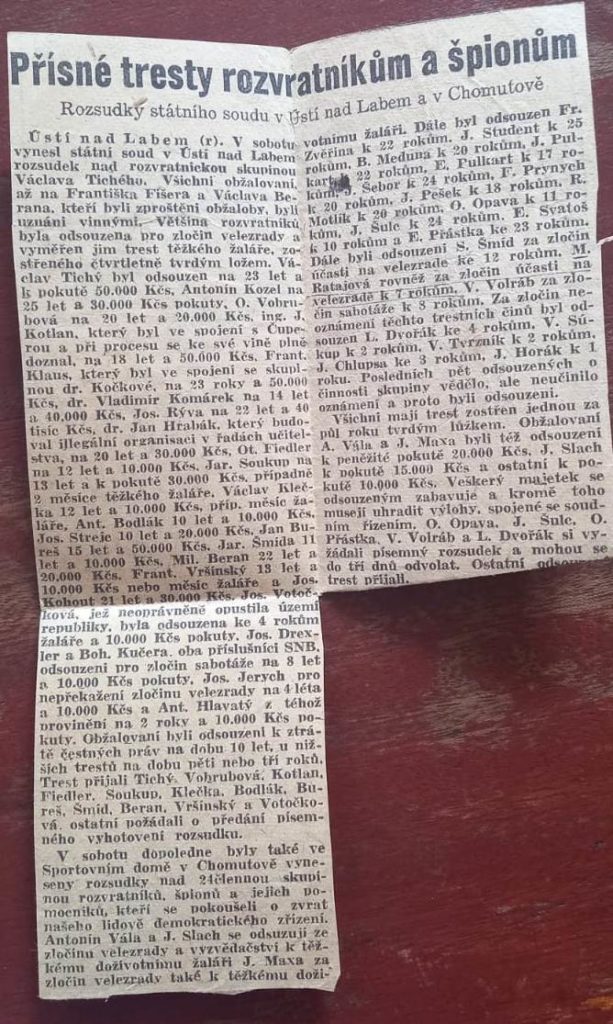 Přísné tresty rozvratníkům a špionům
Rozsudky státního soudu v Ústí nad Labem a v Chomutově
Ústí nad Labem (r). V sobotu
vynesl státní soud v Ústí nad Labem
rozsudek nad rozvratnickou skupinou
Václava Tichého. Všichni obžalovaní,
až na Františka Fišera a Václava Be-
rana, kteří byli zproštěni obžaloby, byli
uznáni vinnými. Většina rozvratníků
byla odsouzena pro zločin velezrady a
vyměřen jim trest těžkého žaláře, zo-
střeného čtvrtletně tvrdým ložem. Vá-
clav Tichý byl odsouzen na 23 let a
k pokutě 50.000 Kčs, Antonín Kozel na
25 let a 30.000 Kčs pokuty, O. Vohru-
bová na 20 let a 20.000 Kčs, ing. J.
Kotlan, který byl ve spojení s Čupe-
rou a při procesu se ke své vině plně
doznal, na 18 let a 50.000 Kčs, Frant.
Klaus, který byl ve spojení se skupi-
nou dr. Kočkové, na 23 roky a 50.000
Kčs, dr. Vladimír Komárek na 14 let
a 40.000 Kčs, Jos. Rýva na 22 let a 40
tisíc Kčs, dr. Jan Hrabák, který budo-
val illegální organisaci v řadách učitel-
stva, na 20 let a 30.000 Kčs, Ot. Fiedler
na 12 let a 10.000 Kčs, Jar. Soukup na
13 let a k pokutě 30.000 Kčs, případně
2 měsíce těžkého žaláře, Václav Kleč-
ka 12 let a 10.000 Kčs, příp. měsíc ža-
láře, Ant. Bodlák 10 let a 10.000 Kčs,
Jos. Streje 10 let a 20.000 Kčs, Jan Bu-
reš 15 let a 50.000 Kčs, Jar. Šmída 11
let a 10.000 Kčs, Mil. Beran 22 let a
20.000 Kčs, Frant. Vršinský 13 let a
10.000 Kčs nebo měsíc žaláře a Jos.
Kohout 21 let a 30.000 Kčs, Jos. Votoč-
ková, jež neoprávněně opustila území
republiky, byla odsouzena ke 4 rokům
žaláře a 10.000 Kčs pokuty, Jos. Drex-
ler a Boh. Kučera, oba příslušníci SNB,
odsouzeni pro zločin sabotáže na 8 let
a 10.000 Kčs pokuty, Jos. Jerych pro
nepřekažení zločinu velezrady na 4 léta
a 10.000 Kčs a Ant. Hlavatý z téhož
provinění na 2 roky a 10.000 Kčs po-
kuty. Obžalovaní byli odsouzeni k ztrá-
tě čestných práv na dobu 10 let, u niž-
ších trestů na dobu pěti nebo tří roků.
Trest přijali Tichý, Vohrubová, Kotlan,
Fiedler, Soukup, Klečka, Bodlák, Bu-
reš, Šmíd, Beran, Vršinský a Votočko-
vá, ostatní požádali o předání písem-
ného vyhotovení rozsudku.
V sobotu dopoledne byly také ve
Sportovním domě v Chomutově vyne-
seny rozsudky nad 24člennou skupi-
nou rozvratníků, špionů a jejich po-
mocníků, kteří se pokoušeli o zvrat
našeho lidově demokratického zřízení.
Antonín Vála a J. Slach se odsuzují ze
zločinu velezrady a vyzvědačství k těž-
kému doživotnímu žaláři J. Maxa za
zločin velezrady také k těžkému doži-
votnímu žaláři. Dále byl odsouzen Fr.
Zvěřina k 22 rokům, J. Student k 25
rokům, B. Meduna k 20 rokům, J. Pul-
kart k 22 rokům, E. Pulkart k 17 ro-
kům, J. Šebor k 24 rokům, F. Prynych
k 20 rokům, J. Pešek k 18 rokům, R.
Motlík k 20 rokům, O. Opava k 11 ro-
kům, J. Šulc k 24 rokům, E. Svatoš
k 10 rokům a E. Přástka ke 23 rokům.
Dále byli odsouzeni S. Šmíd za zločin
účasti na velezradě ke 12 rokům, M.
Ratajová rovněž za zločin účasti na
velezradě k 7 rokům, V. Volráb za zlo-
čin sabotáže k 8 rokům. Za zločin ne-
oznámení těchto trestních činů byl od-
souzen L. Dvořák ke 4 rokům, V. Sú-
kup k 2 rokům, V. Tvrzník k 2 rokům,
J. Chlupsa ke 3 rokům, J. Horák k 1
roku. Posledních pět odsouzených o
činnosti skupiny vědělo, ale neučinilo
oznámení a proto byli odsouzeni.
Všichni mají trest zostřen jednou za
půl roku tvrdým lůžkem. Obžalovaní
A. Vála a J. Maxa byli též odsouzeni
k peněžité pokutě 20.000 Kčs, J. Slach
k pokutě 15.000 Kčs a ostatní k po-
kutě 10.000 Kčs. Veškerý majetek se
odsouzeným zabavuje a kromě toho
musejí uhradit výlohy, spojené se soud-
ním řízením. O. Opava, J. Šulc, O.
Přástka, V. Volráb a L. Dvořák si vy-
žádali písemný rozsudek a mohou se
do tří dnů odvolat. Ostatní odsouzení
trest přijali.